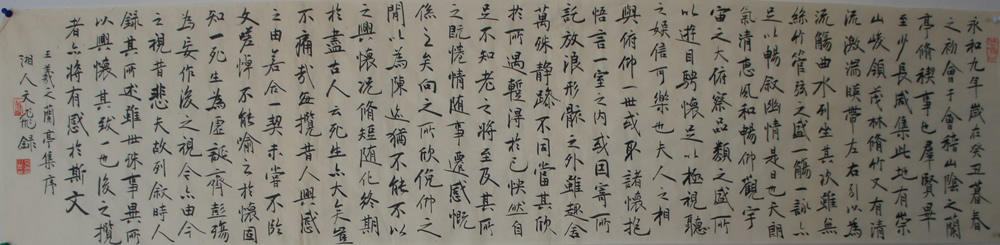 永和九年歲在癸丑暮春
之初會于會稽山陰之蘭
亭脩稧事也羣賢畢
至少長咸集此地有崇
山峻領茂林脩竹又有清
流激湍暎帶左右引以為
流觴曲水列坐其次雖無
絲竹管弦之盛一觴一詠亦
足以暢叙幽情是日也天朗
氣清惠風和暢仰觀宇
宙之大俯察品類之盛所
以遊目騁懷足以極視聽
之娛信可樂也夫人之相
與俯仰一世或取諸懷抱
悟言一室之內或因寄所
託放浪形骸之外雖趣舍
萬殊静躁不同當其欣
於所遇蹔得於己快然自
足不知老之將至及其所
之既惓情随事遷感慨
係之矣向之所欣俛仰之
間以為陳迹猶不能不以
之興懷况脩短随化終期
於盡古人云死生亦大矣豈
不痛哉每攬昔人興感
之由若合一契未嘗不臨
文嗟悼不能喻之於懷固
知一死生為虛誕齊彭殤
為妄作後之視今亦由今
之視昔悲夫故列叙時人
錄其所述雖世殊事異所
以興懷其致一也後之攬
者亦將有感於斯文
王羲之蘭亭集序
湖人天龍錄